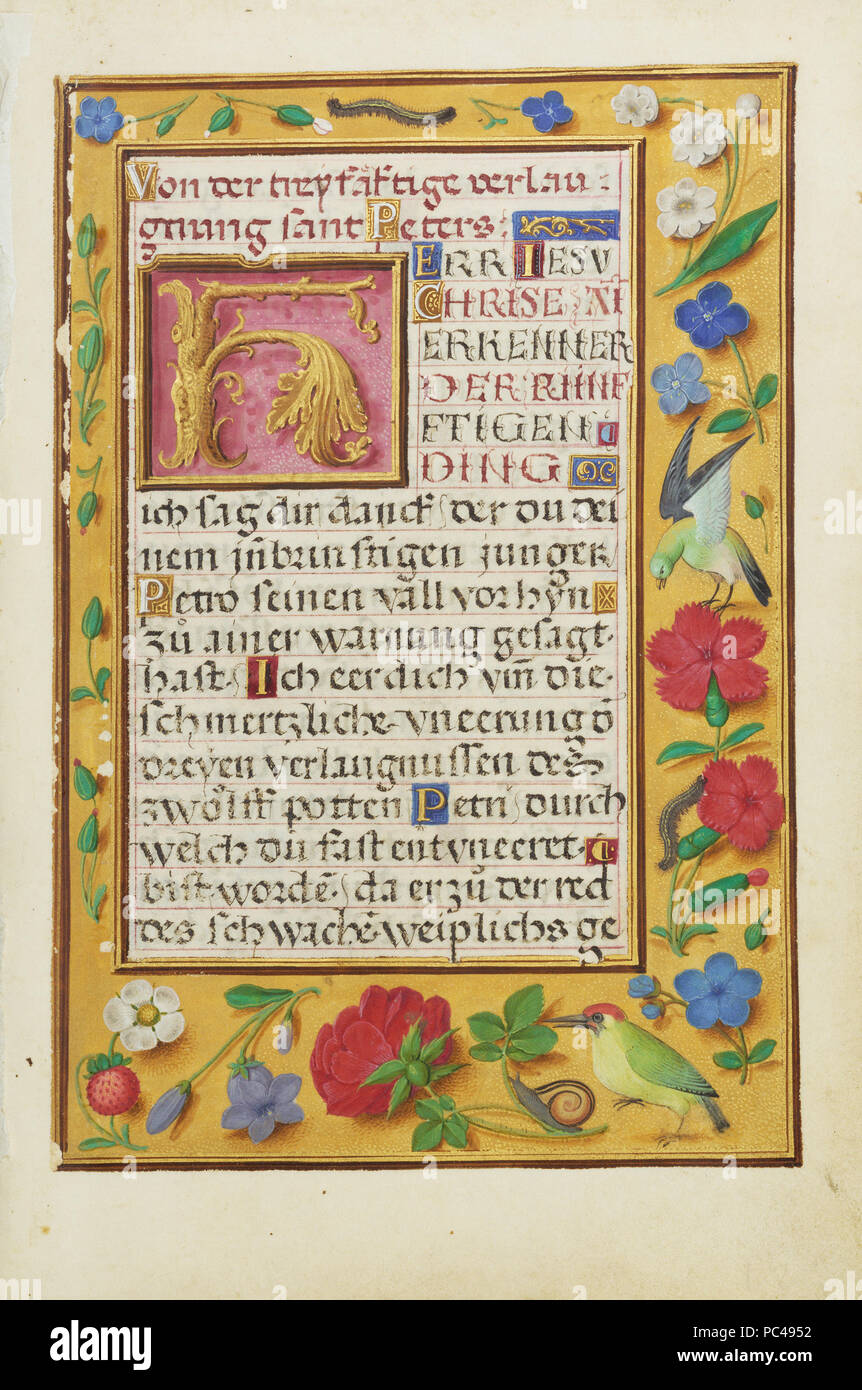 Von der treyfaͤftige verlau:
gnung sant Peters:
HERR IESV
CHRISE AI
ERKENNER
DER KHNF
FTIGEN
DING
ich sag dir danck der du dei
nem jn̄brinstigen junger
Petro seinen vall vor hÿn
zů ainer warnung gesagt
hast. Ich eer dich vm̄ die
schmertzliche vneerung d̄
dreyen verlaugnussen des
zwölff potten Petri durch
welch du fast entvneeret
bist wordē. da er zů der red
des schwachē weiplichs ge
alamy
Image ID: PC4952
www.alamy.com